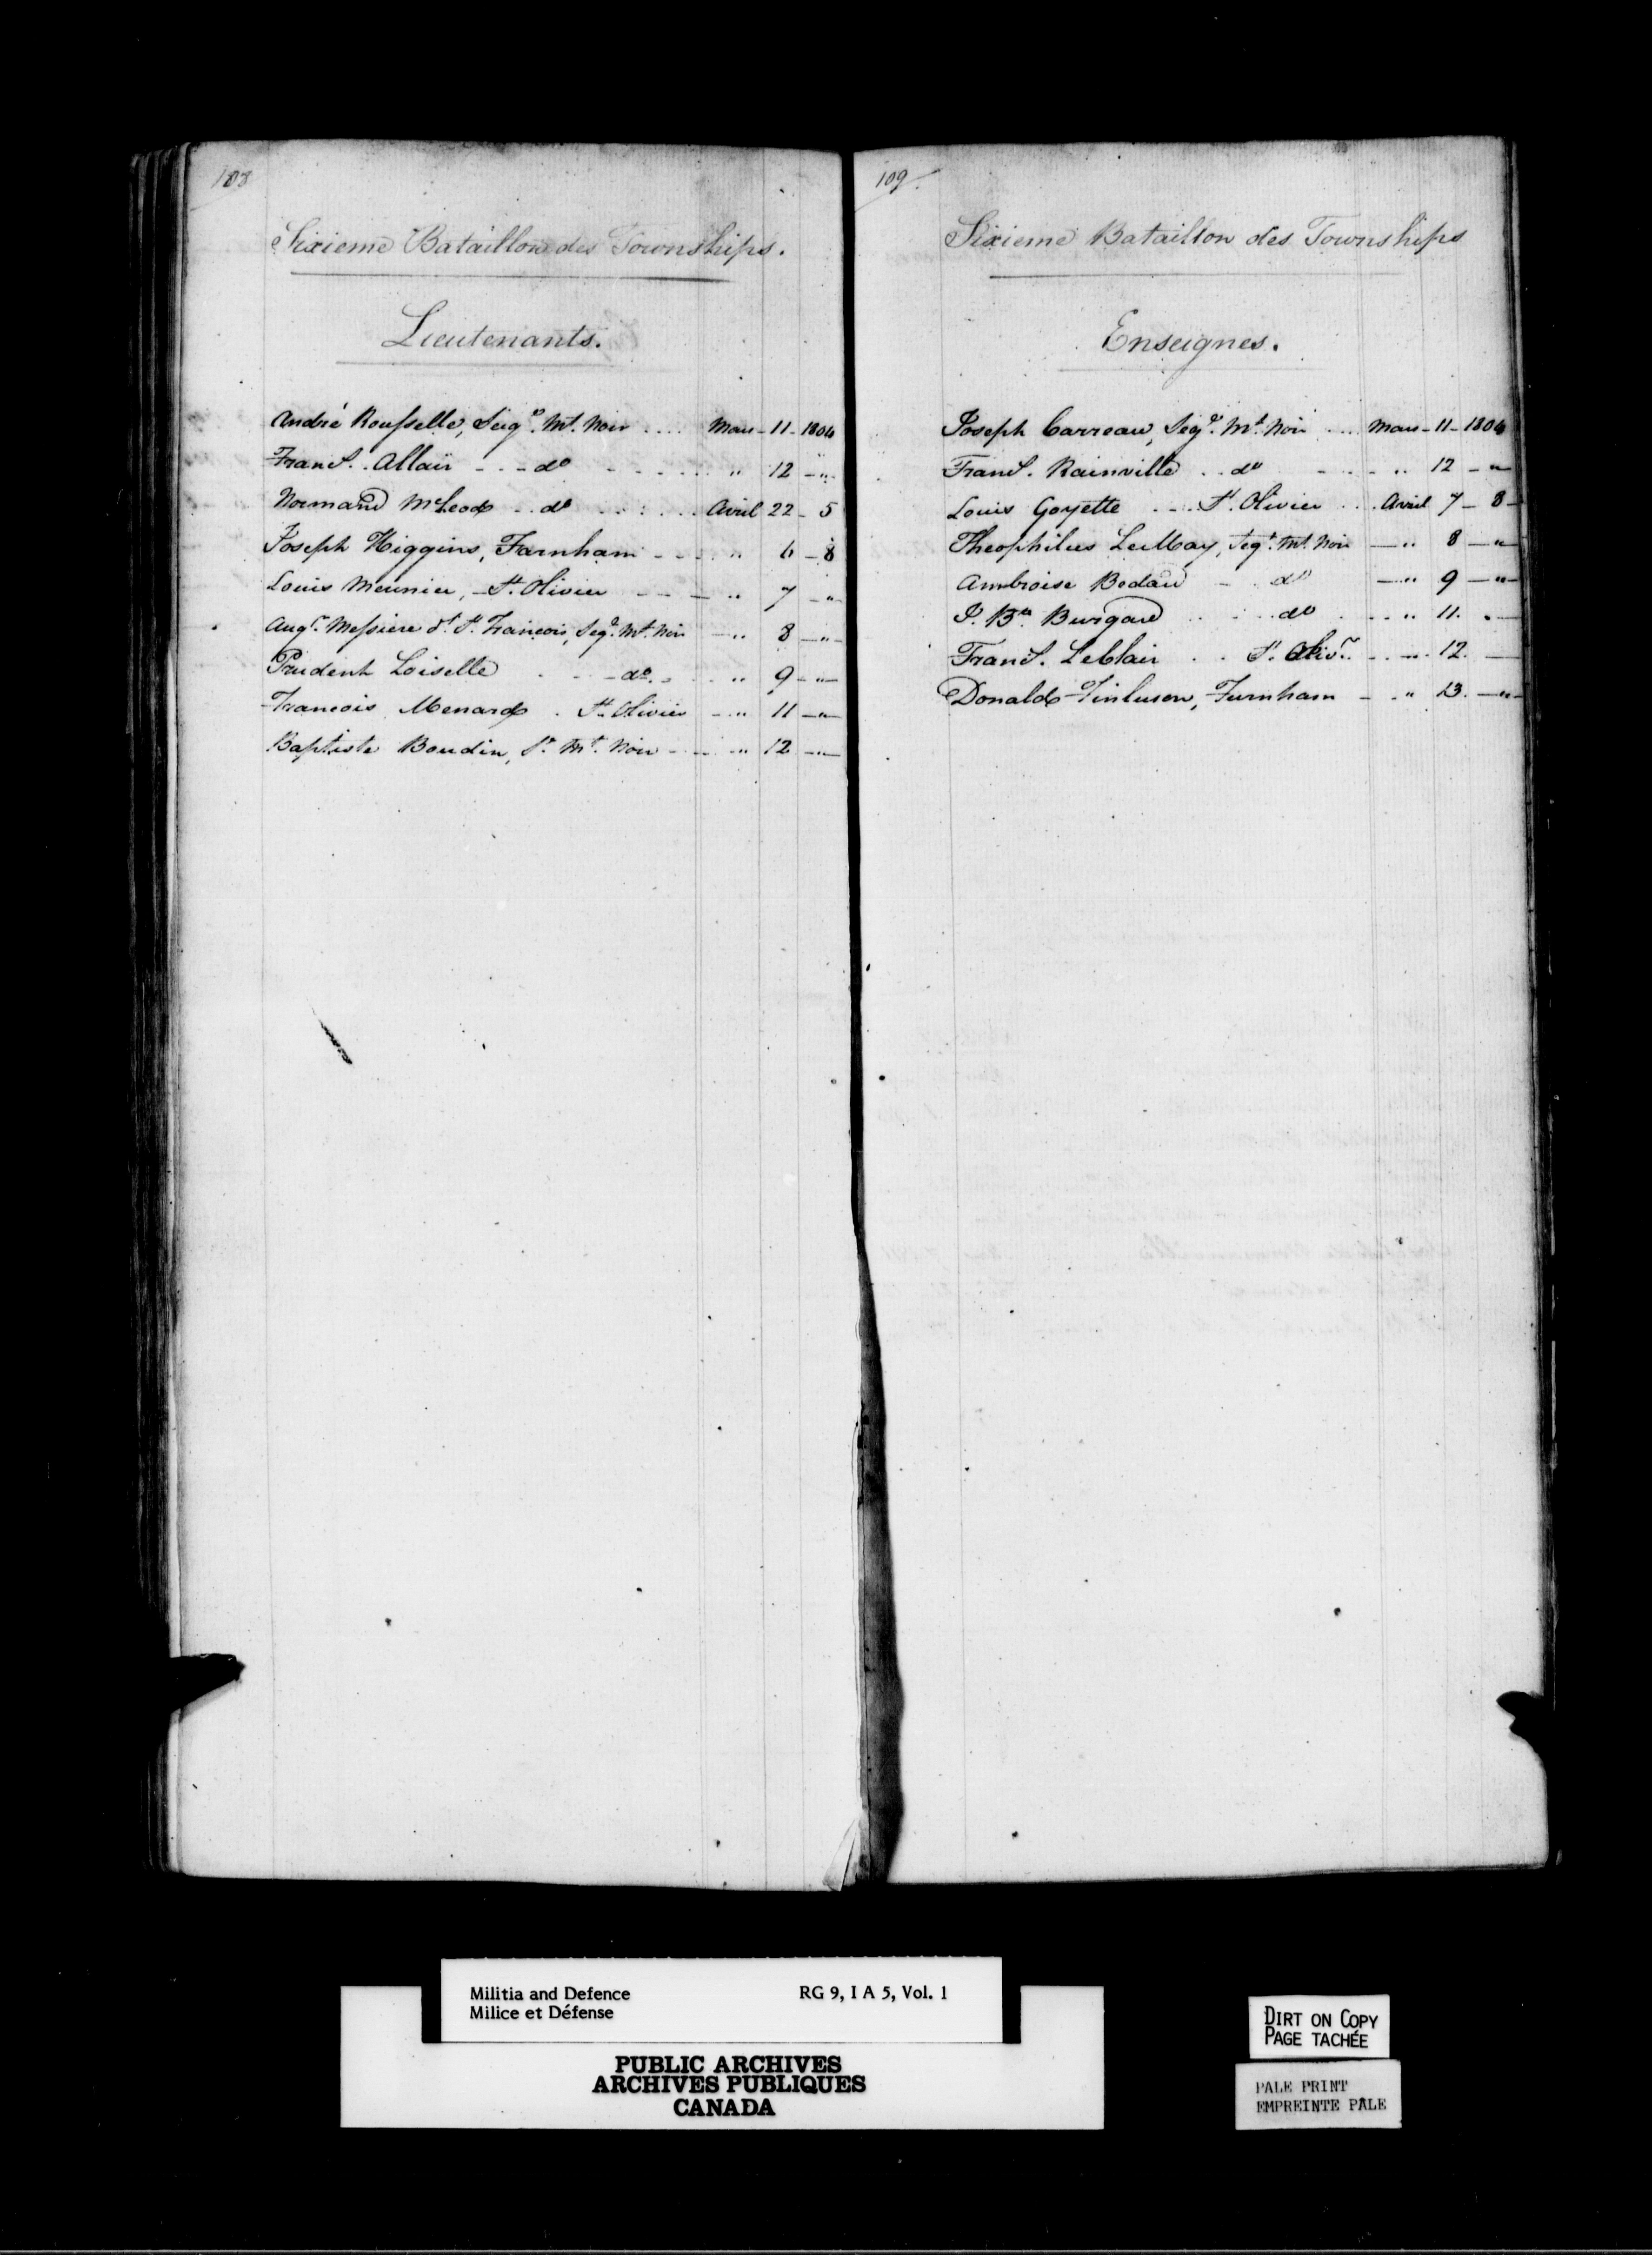 108
Sixieme Bataillon des Townships.
Lieutenants.
André Rousselle, Seigie. Mt. Noir .... Mars - 11 - 1804
Francs. Allair - - - do - - - - - - " 12 - "
Normand McLeod - - do - - - - - Avril 22 - 5
Joseph Higgins, Farnham - - - " 6 - 8
Louis Meunier, - St. Olivier - - - " 7 - "
Augn. Messiere dt. St. Francois, Segie. Mt. Noir - " 8 - "
Prudent Loiselle - - - do. - - " 9 - "
Francois Menard . St. Olivier - - " 11 - "
Baptiste Boudin, Sr. Mt. Noir - - - " 12 - "
109.
Sixieme Bataillon des Townships
Enseignes.
Joseph Carreau, Segie. Mt. Noir .... Mars - 11 - 1804
Francs. Rainville . . do - - - - " 12 - "
Louis Goyette . . . . St. Olivier . . . Avril 7 - 8 -
Theophilus LeMay, Segr. Mt. Noir - " 8 - "
Ambroise Bedard - . do - " 9 - "
J. Bte. Burgard . . . . do . . . . " 11. . -
Francs. Leblair . . St. Olivr. . . . " 12. -
Donald Finluson, Furnham - - " 13. - "
Militia and Defence RG 9, I A 5, Vol. 1
Milice et Défense
PUBLIC ARCHIVES
ARCHIVES PUBLIQUES
CANADA
DIRT ON COPY
PAGE TACHÉE
PALE PRINT
EMPREINTE PÂLE